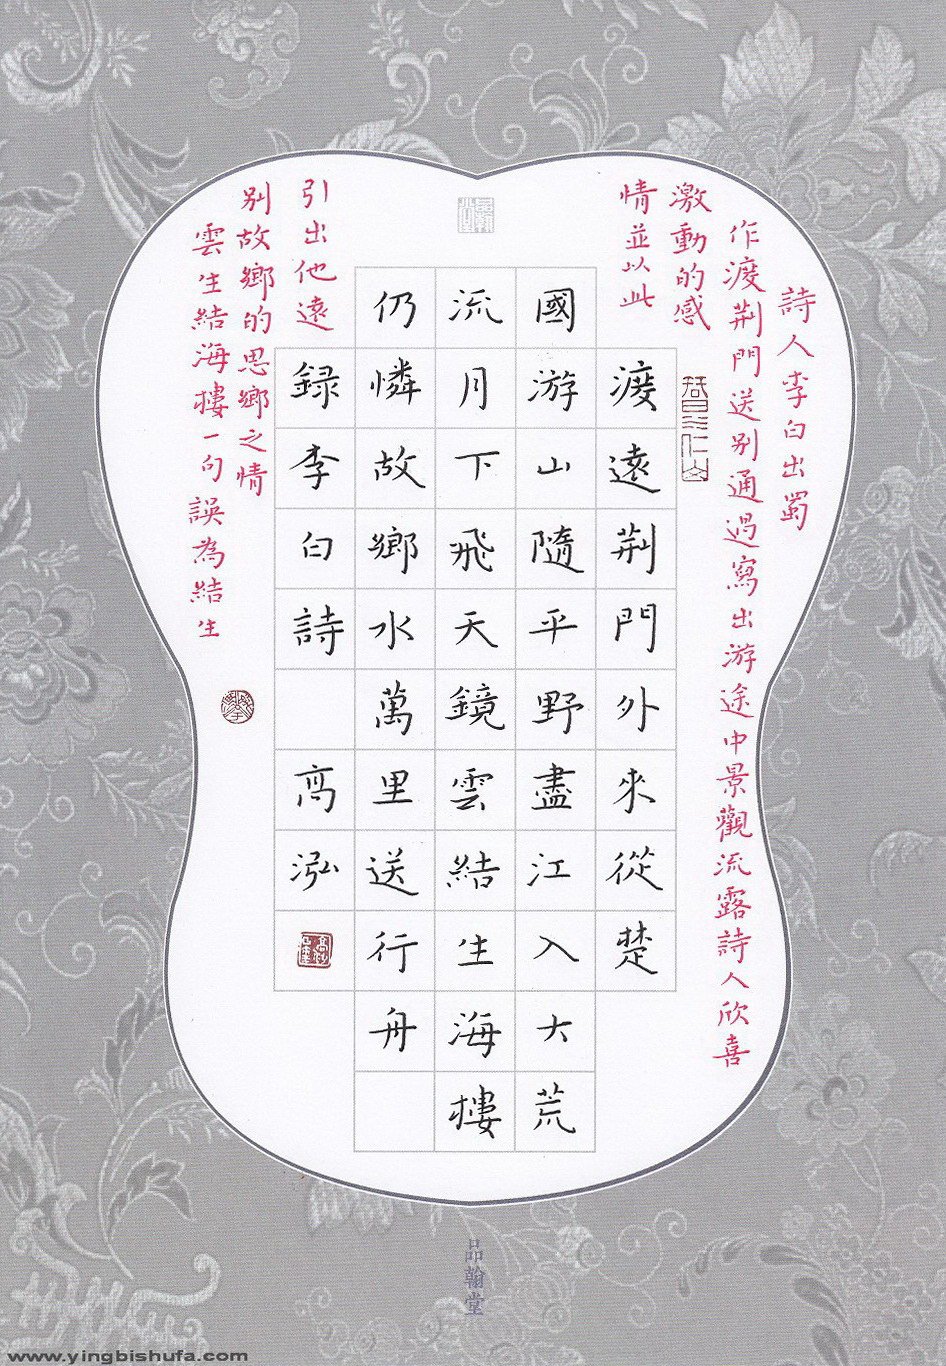 渡遠荆門外來從楚
國游山隨平野盡江入大荒
流月下飛天鏡雲結生海樓
仍憐故鄉水萬里送行舟
録李白詩 高泓
詩人李白出蜀
作渡荆門送别通過寫出游途中景觀流露詩人欣喜
激動的感
情並以此
引出他遠
别故鄉的思鄉之情
雲生結海樓一句誤為結生
品翰堂
www.yingbishufa.com